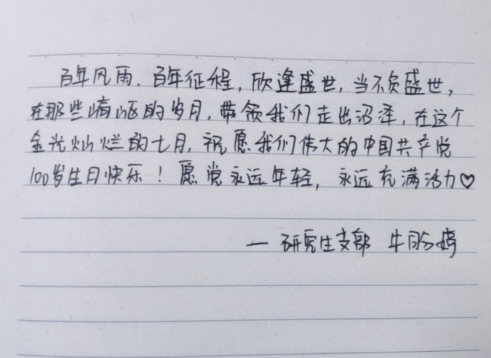 百年风雨，百年征程，欣逢盛世，当不负盛世，
在那些崎岖的岁月，带领我们走出沼泽，在这个
金光灿烂的七月，祝愿我们伟大的中国共产党
100岁生日快乐！愿党永远年轻，永远充满活力♡
—研究生支部 牛盼婷